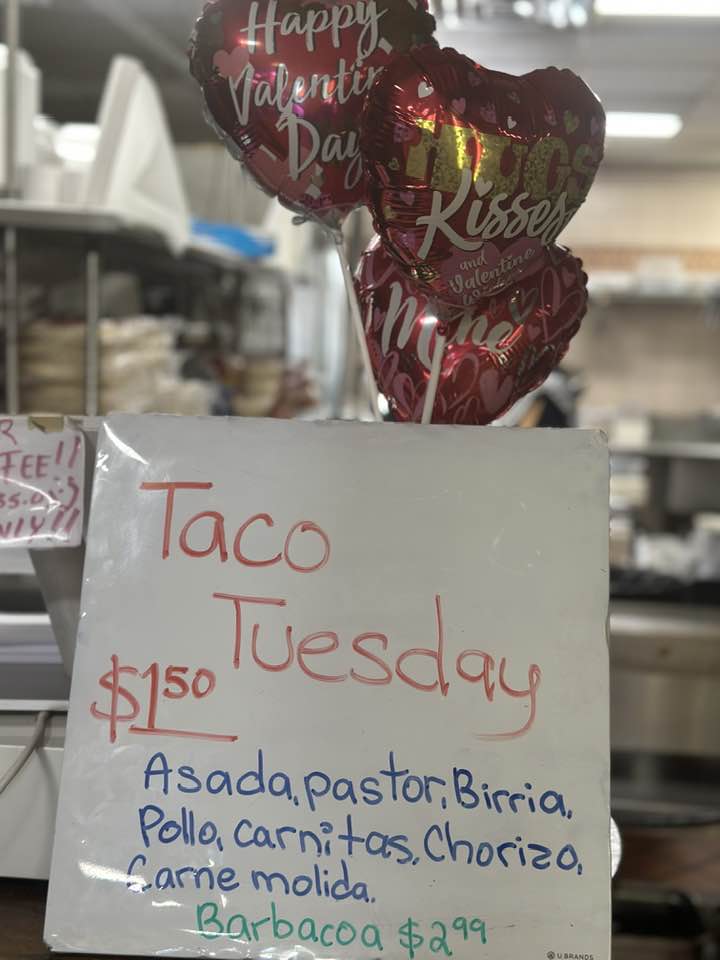 Happy
Valentin
Day
HUGS
Kisses
and
Valentine
Mine
R
FEE!!
Taco
Tuesday
$1.50
Asada, pastor, Birria,
Pollo, carnitas, Chorizo,
Carne molida.
Barbacoa $2.99
U BRANDS